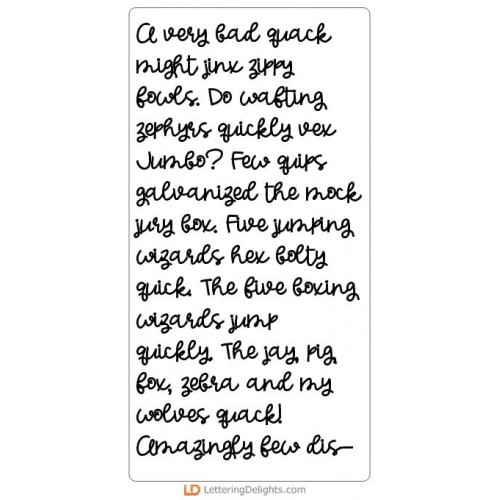 A very bad quack
might jinx zippy
fowls. Do wafting
zephyrs quickly vex
Jumbo? Few quips
galvanized the mock
jury box. Five jumping
wizards hex bolty
quick. The five boxing
wizards jump
quickly. The jay, pig,
fox, zebra and my
wolves quack!
Amazingly few dis-
LD LetteringDelights.com